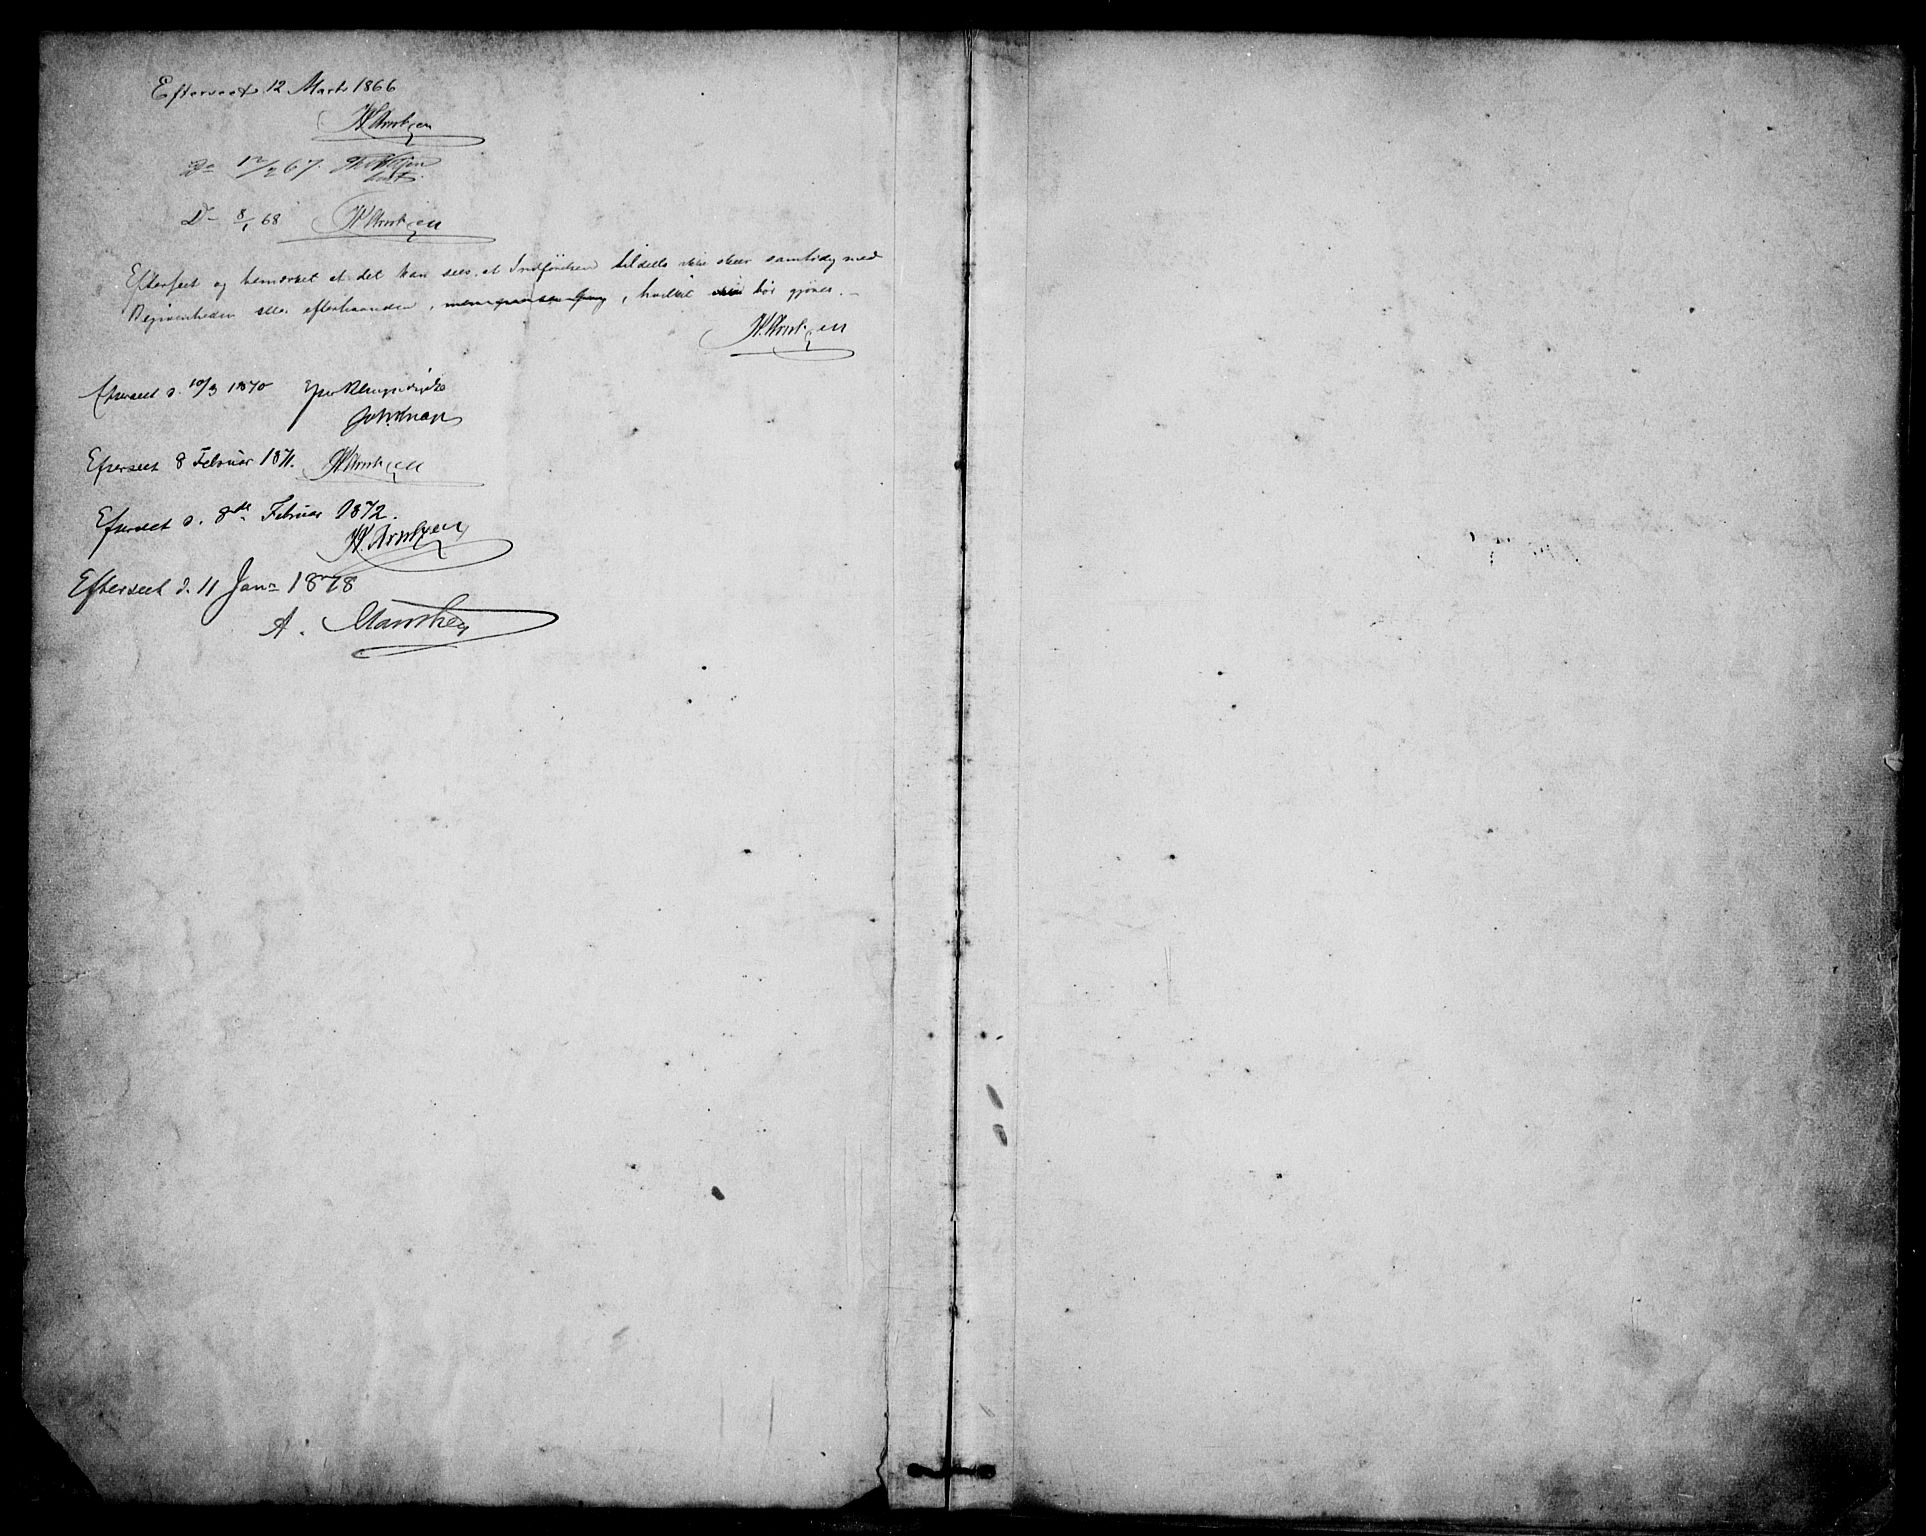 Efterseet 12 Marts 1866
H. Arntzen
Do 12/2 67.
Do 8/1 68 H. Arntzen
Efterseet og bemærket at det kan sees, at Indførelsen tildels ikke skeer samtidig med
Begivenheden eller efterhaanden, , hvilket bør gjøres. –
H. Arntzen
Efterseet d. 10/3 1870
Efterseet 8 Februar 1871. H. Arntzen
Efterseet d. 8de Februar 1872.
H. Arntzen
Efterseet d. 11 Janr 1878
A.